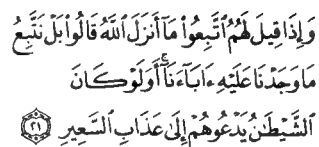 وَإِذَا قِيلَ لَهُمُ ٱتَّبِعُوا۟ مَآ أَنزَلَ ٱللَّهُ قَالُوا۟ بَلْ نَتَّبِعُ
مَا وَجَدْنَا عَلَيْهِ ءَابَآءَنَآ أَوَلَوْ كَانَ
ٱلشَّيْطَٰنُ يَدْعُوهُمْ إِلَىٰ عَذَابِ ٱلسَّعِيرِ ۝٢١